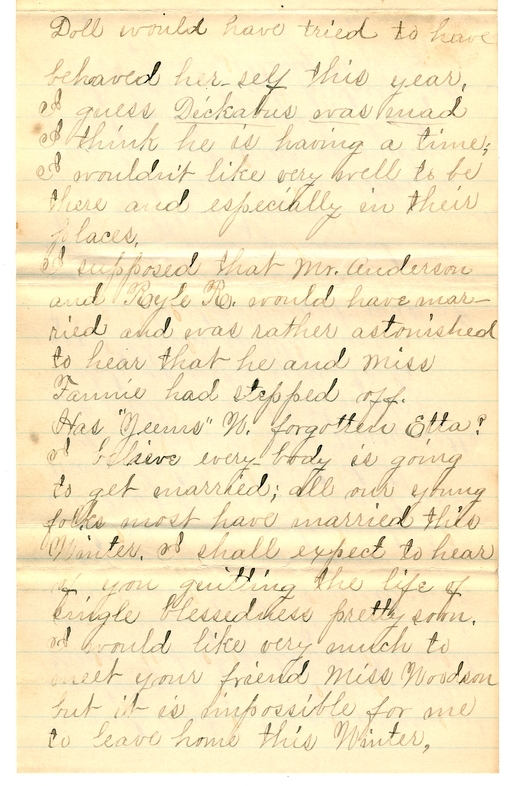 Doll would have tried to have
behaved her-self this year.
I guess Dickabus was mad
I think he is having a time;
I wouldn't like very well to be
there and especially in their
places.
I supposed that Mr. Anderson
and Ryle R. would have mar-
ried and was rather astonished
to hear that he and Miss
Fannie had stepped off.
Has "Neems" W. forgotten Etta?
I believe every-body is going
to get married; all our young
folks most have married this
Winter. I shall expect to hear
of you quitting the life of
single blessedness pretty soon.
I would like very much to
meet your friend Miss Woodson
but it is impossible for me
to leave home this Winter,